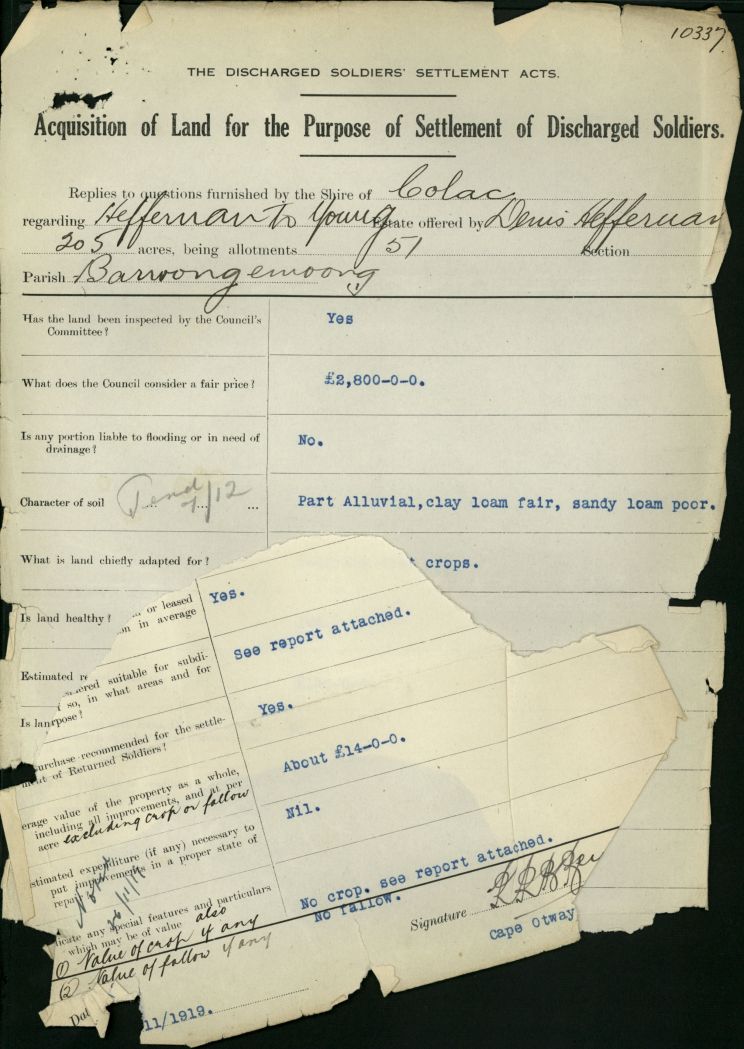 10337
THE DISCHARGED SOLDIERS' SETTLEMENT ACTS.
Acquisition of Land for the Purpose of Settlement of Discharged Soldiers.
Replies to questions furnished by the Shire of Colac
regarding Heffernan to Young Estate offered by Denis Heffernan
205 acres, being allotments 51 Section
Parish Barwongemoong
Has the land been inspected by the Council's Yes
Committee?
What does the Council consider a fair price? £2,800-0-0.
Is any portion liable to flooding or in need of No.
drainage?
Character of soil Part Alluvial, clay loam fair, sandy loam poor.
What is land chiefly adapted for? crops.
Is land healthy?
Estimated
Is lan
or leased Yes.
in average
See report attached.
suitable for subdi-
so, in what areas and for
pose?
Yes.
urchase recommended for the settle-
ment of Returned Soldiers?
About £14-0-0.
erage value of the property as a whole,
including all improvements, and at per
acre excluding crop or fallow
Nil.
stimated expenditure (if any) necessary to
put improvements in a proper state of
repair
26/11/19
icate any special features and particulars
which may be of value also
No crop. see report attached.
No fallow.
(1) Value of crop if any
(2) Value of fallow if any
Signature
Cape Otway
Dat 11/1919.